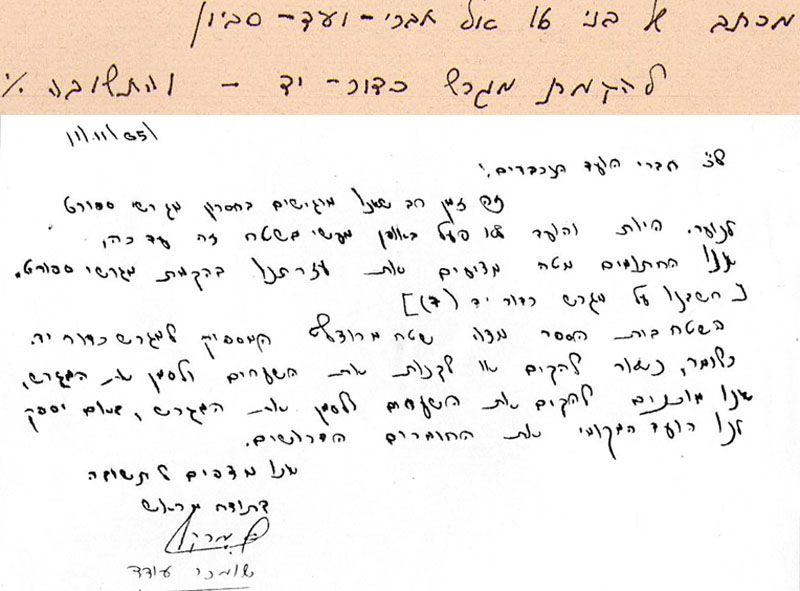 מכתב של בני 16 אל חברי-ועד-סביון
להקמת מגרש כדור-יד - והתשובה %
11/11/65
לכב' חברי הועד הנכבדים,
זה זמן רב שאנו מרגישים בחסרון מגרשי ספורט
לנוער. היות והועד לא פעל באופן מעשי בשטח זה עד כה,
אנו החתומים מטה מציעים את עזרתנו בהקמת מגרשי ספורט.
חשבנו על מגרש כדור יד (7)]
בשטח בית הספר מצוי שטח מרוצף המספיק למגרש כדור יד.
כלומר, נשאר להקים או לקנות את השערים ולסמן את המגרש,
אנו מוכנים להקים את השערים ולסמן את המגרש, באם יספק
לנו הועד המקומי את החומרים הדרושים.
אנו מצפים לתשובה
בתודה מראש
מרקו
שומכי עודד